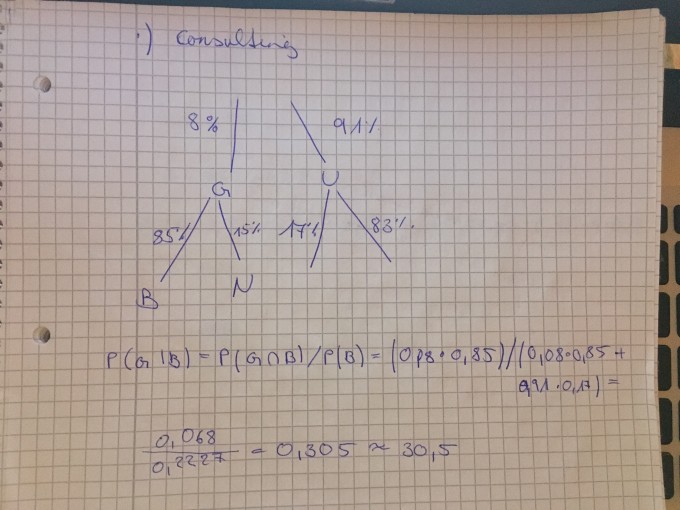 1) Consulting
8% 91%
G U
85% 15% 17% 83%
B N
P(G|B) = P(G∩B)/P(B) = (0,08·0,85)/(0,08·0,85 +
0,91·0,17) =
0,068
0,2227 = 0,305 ≈ 30,5